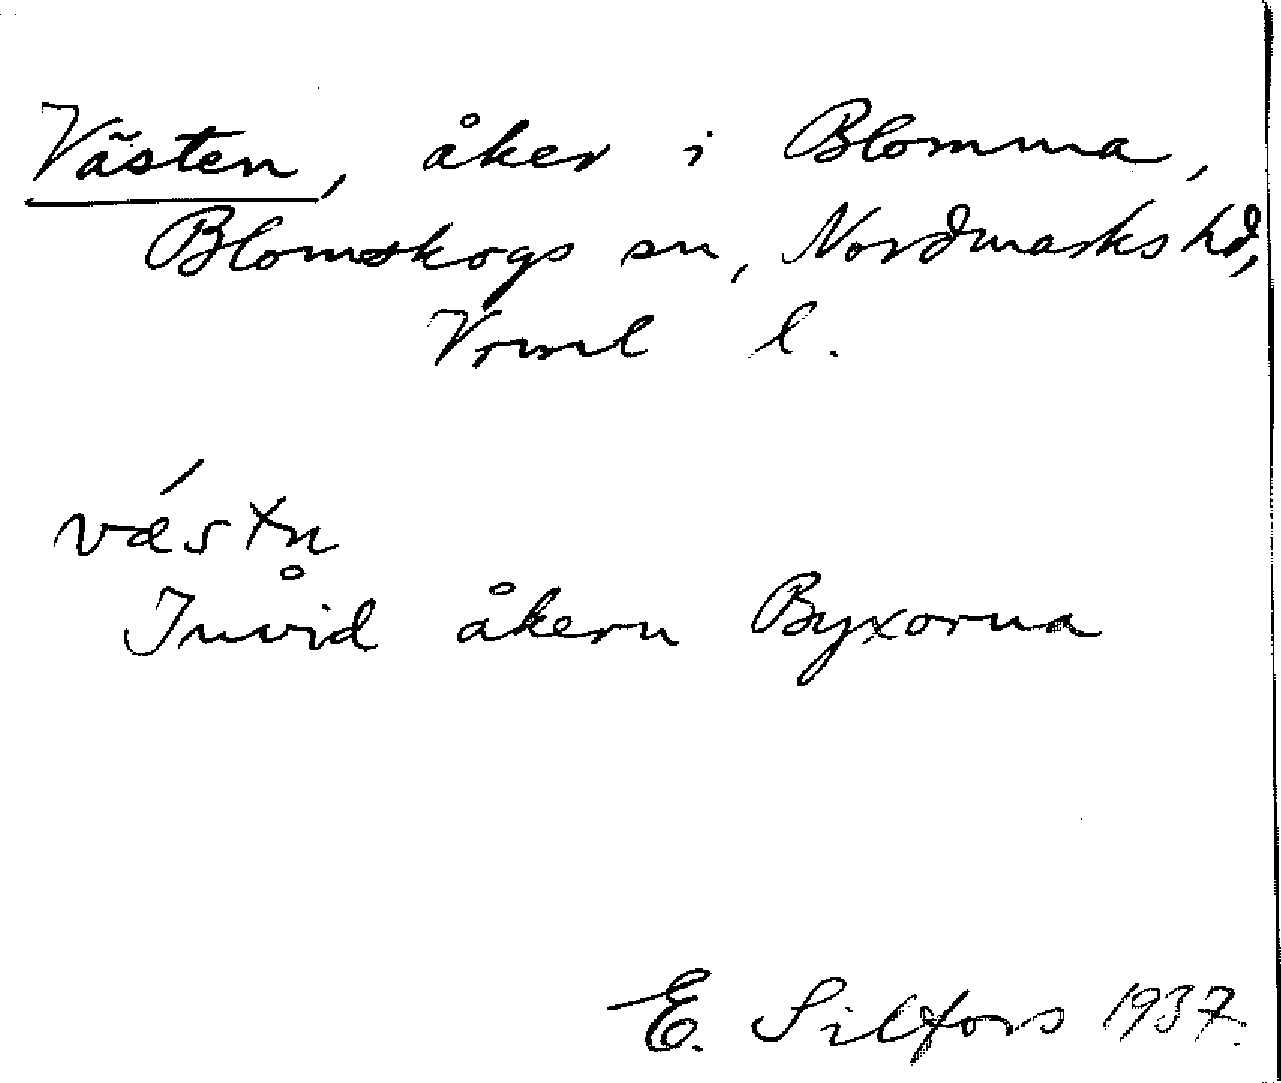 Västen, åker i Blomma,
Blomskogs sn, Nordmarks hd,
Vrml l.
væ´stn̥
Invid åkern Byxorna
E. Silfors 1937.